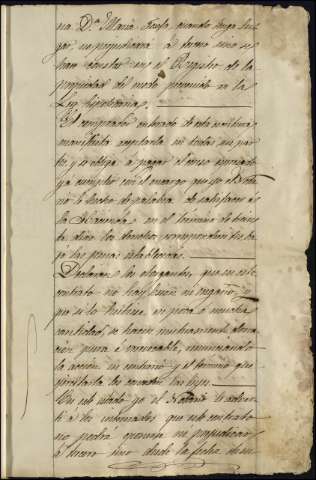 na D.ª Maria Josefa, cuando haya lu
gar, no perjudicará á tercero sino se
hace constar en el Registro de la
propiedad del modo prevenido en la
Ley hipotecaria,
El comprador enterado de esta escritura,
manifiesta aceptarla en todas sus par
tes, y se obliga á pagar el censo espresado
y á cumplir con el encargo que yo el Nota
rio le hecho de palabra de satisfacer á
la Hacienda, en el termino de trein
ta dias los derechos correspondientes ba
jo las penas establecidas.
Declaran los otorgantes, que en este
contrato no hay lesion ni engaño, y
que si lo hubiese, en poca ó mucha
cantidad, se hacen mutuamente dona
cion pura é irrevocable, renunciando
la accion en contrario y el termino que
para intentarla les conceden las leyes.
En este estado yo el Notario le adver
ti á los interesados que este contrato
no podrá oponerse ni perjudicar
á tercero sino desde la fecha de su